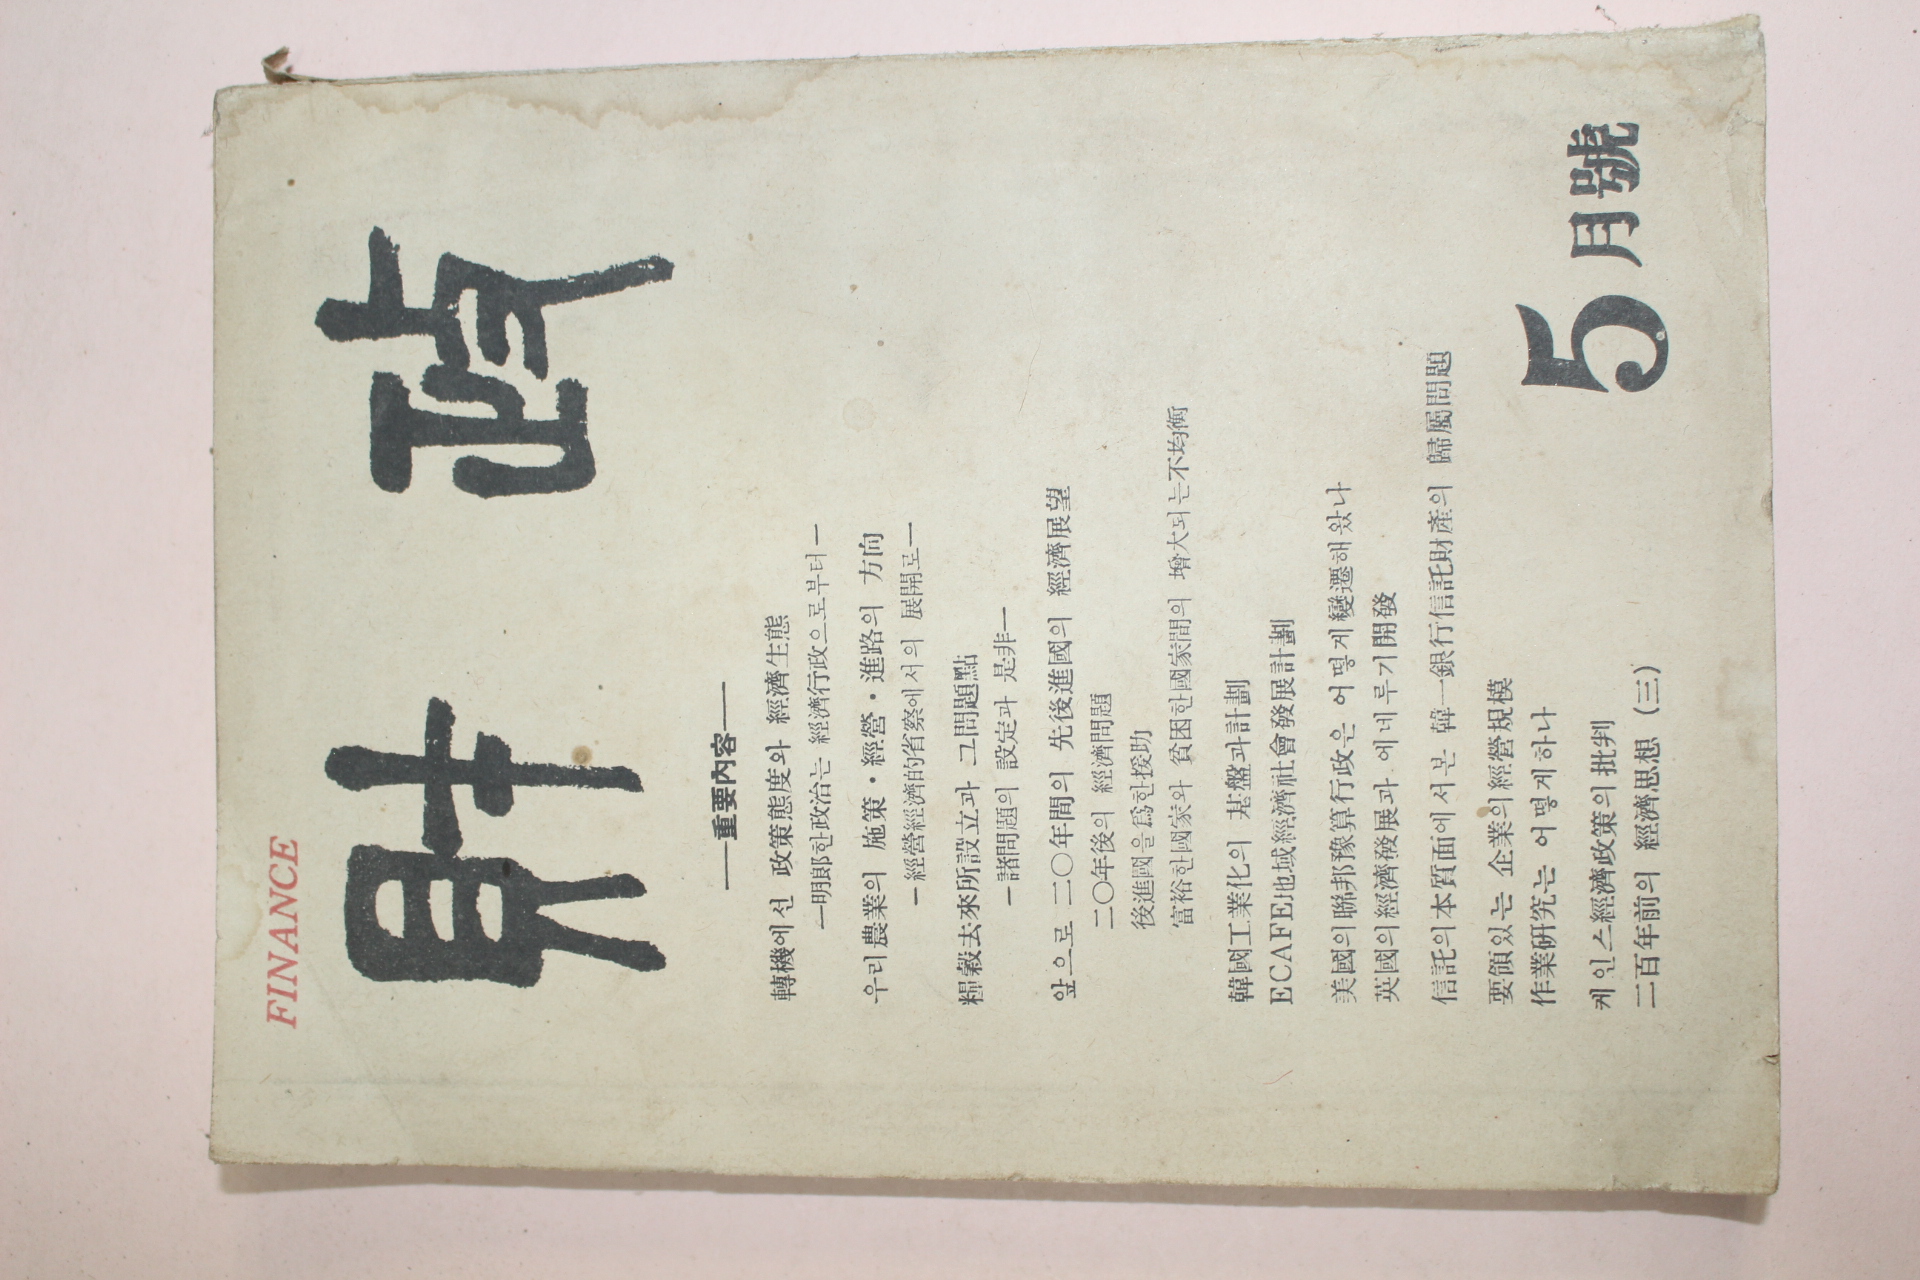 FINANCE
財政
重要內容
轉機에선 政策態度와 經濟生態
—明郞한政治는 經濟行政으로부터—
우리農業의 施策・經營・進路의 方向
—經營經濟的省察에서의 展開로—
糧穀去來所設立과 그問題點
—諸問題의 設定과 是非—
앞으로 二〇年間의 先後進國의 經濟展望
二〇年後의 經濟問題
後進國을爲한援助
富裕한國家와 貧困한國家間의 增大되는不均衡
韓國工業化의 基盤과計劃
ECAFE地域經濟社會發展計劃
美國의聯邦豫算行政은 어떻게變遷해왔나
英國의經濟發展과 에네루기開發
信託의本質面에서본 韓一銀行信託財產의 歸屬問題
要領있는 企業의經營規模
作業硏究는 어떻게하나
케인스經濟政策의批判
二百年前의 經濟思想 (三)
5月號